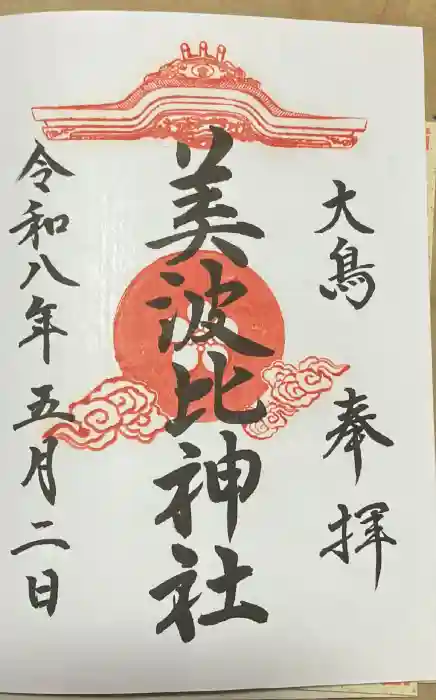 大鳥 奉拝
美波比神社
令和八年五月二日